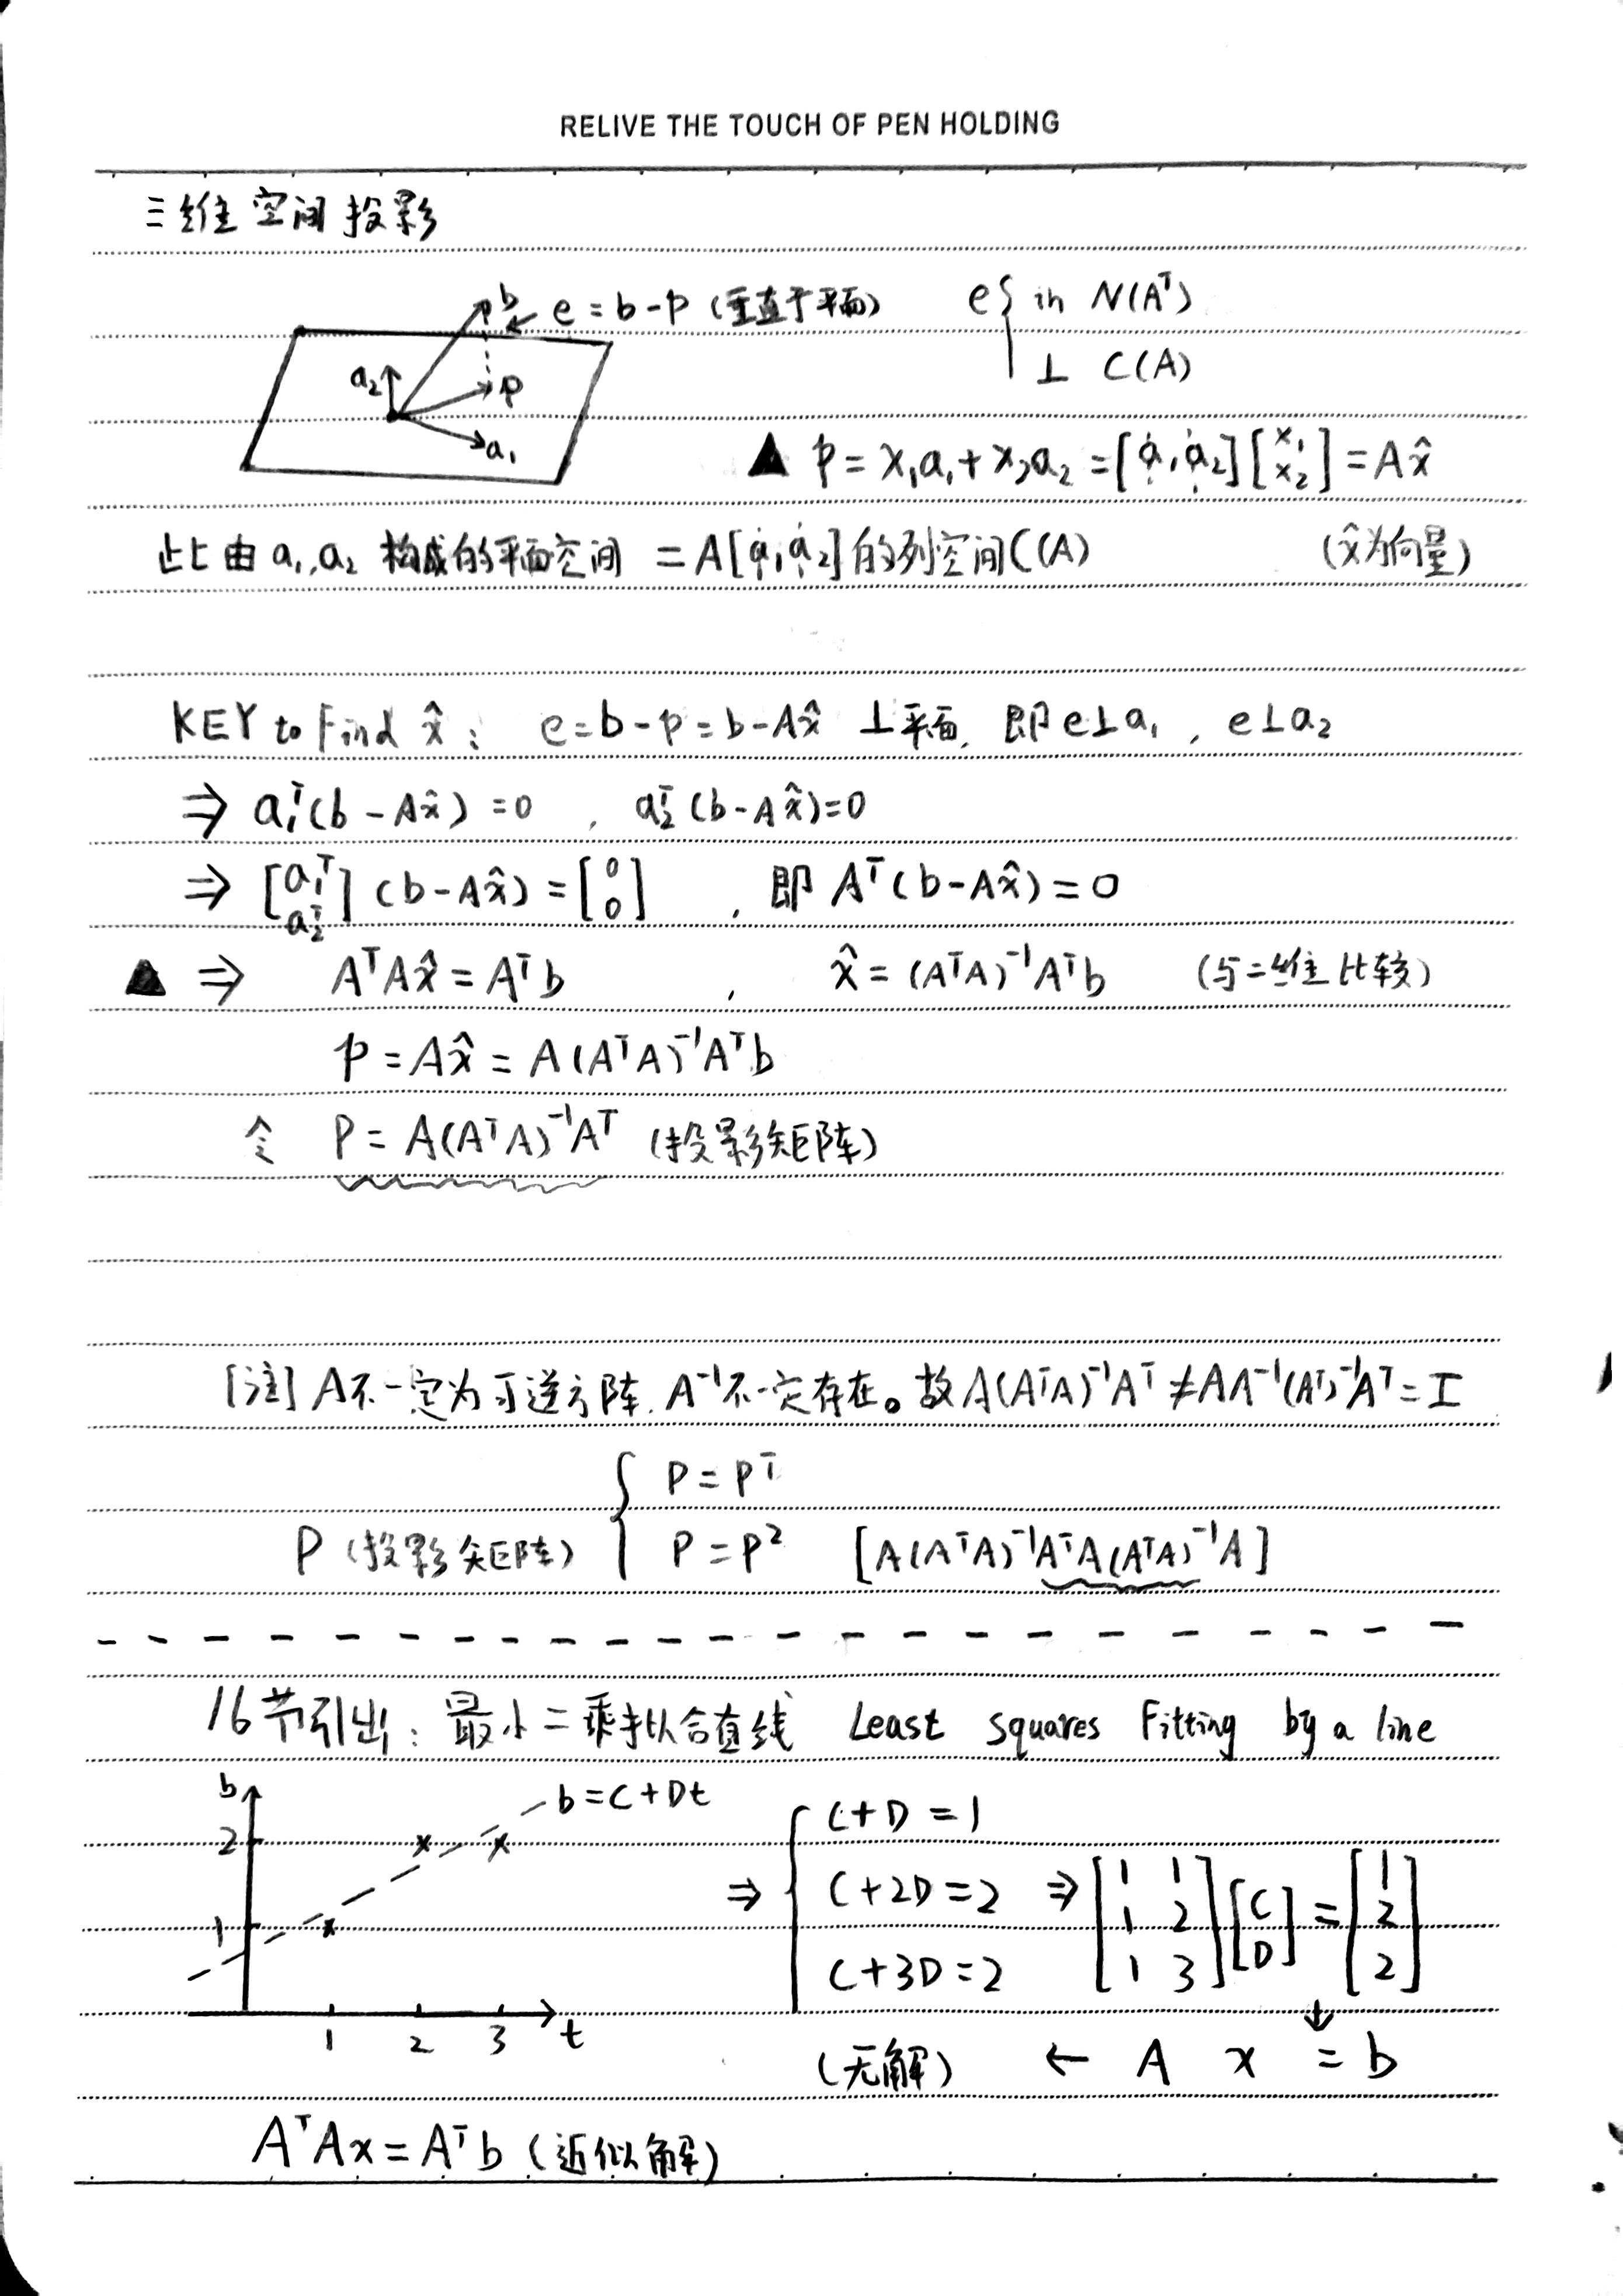 RELIVE THE TOUCH OF PEN HOLDING
三维空间投影
b
e = b - p (垂直于平面)
e { in N(Aᵀ)
⊥ C(A)
a₂
p
a₁
▲ p = x₁a₁ + x₂a₂ = [a₁ a₂][x₁ x₂] = Ax̂
此由a₁,a₂ 构成的平面空间 = A[a₁ a₂]的列空间C(A) (x̂为向量)
KEY to Find x̂ : e = b - p = b - Ax̂ ⊥平面, 即 e⊥a₁ , e⊥a₂
⇒ a₁ᵀ(b - Ax̂) = 0 , a₂ᵀ(b - Ax̂) = 0
⇒ [a₁ᵀ a₂ᵀ] (b - Ax̂) = [0 0] , 即 Aᵀ(b - Ax̂) = 0
▲ ⇒ AᵀAx̂ = Aᵀb , x̂ = (AᵀA)⁻¹Aᵀb (与二维比较)
p = Ax̂ = A(AᵀA)⁻¹Aᵀb
令 P = A(AᵀA)⁻¹Aᵀ (投影矩阵)
[注] A不一定为可逆方阵, A⁻¹不一定存在。故A(AᵀA)⁻¹Aᵀ ≠ AA⁻¹(Aᵀ)⁻¹Aᵀ = I
P = Pᵀ
P (投影矩阵) { P = P² [A(AᵀA)⁻¹AᵀA(AᵀA)⁻¹A]
16节引出: 最小二乘拟合直线 Least squares Fitting by a line
b
b = C + Dt
2
1
1 2 3 t
⇒ { C + D = 1
C + 2D = 2
C + 3D = 2
⇒ [1 1
1 2
1 3] [C
D] = [1
2
2]
(无解) ← A x = b
AᵀAx = Aᵀb (近似解)